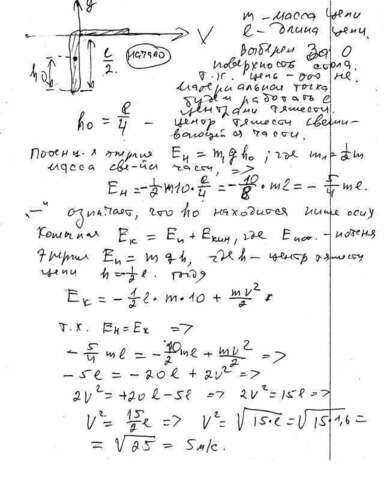 y
m - масса цепи
l - длина цепи.
V
начало
l/2.
h₀
Выберем за 0
поверхность стола.
т.к. цепь - это не
материальная точка
будем работать с
центрами тяжести.
h₀ = l/4 - центр тяжести свеши-
вающейся части.
Потенц-я энергия Eн = m₁gh₀; где m₁ = 1/2 m
масса свеш-ся части, =>
Eн = -1/2 m10·l/4 = -10/8·ml = -5/4 ml.
„-" означает, что h₀ находится ниже оси
Конечная Eк = Eп + Eкин, где Eпот. - потенц
энергия Eп = mgh, где h - центр тяжести
цепи h = 1/2 l. тогда
Eк = -1/2 l·m·10 + mv²/2
т.к. Eн = Eк =>
-5/4 ml = -10/2 ml + mv²/2 =>
-5l = -20l + 2v² =>
2v² = +20l - 5l => 2v² = 15l =>
V² = 15/2 l => V² = √15·l = √15·1,6 =
= √25 = 5м/с.